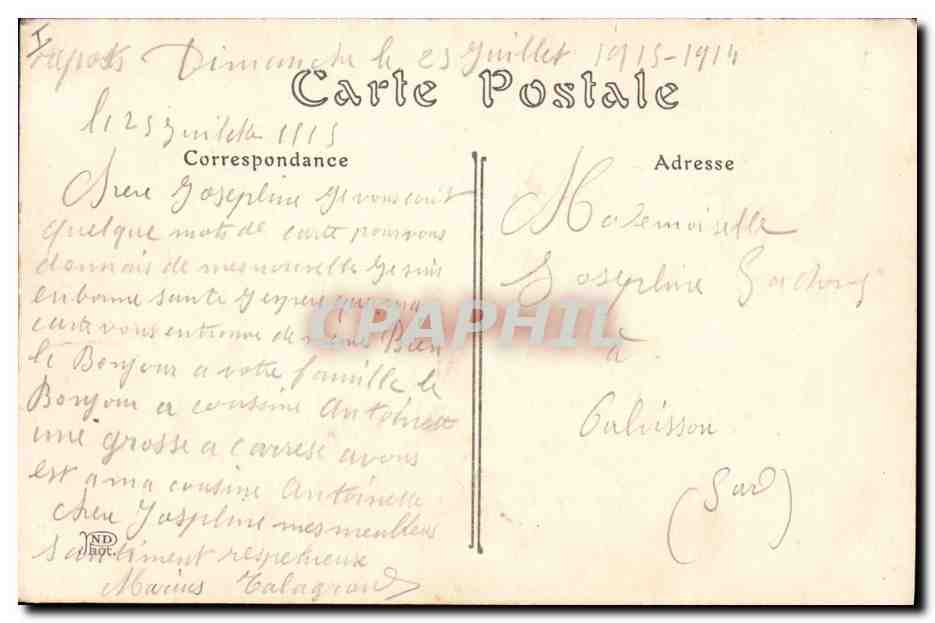 Dimanche le 25 Juillet 1915-1914
Carte Postale
le 25 Juillet 1915
Correspondance
Chere Josephine Je vous écrit
quelque mots de carte pour vous
donnais de mes nouvelle Je suis
en bonne sante J espere que ma
carte vous entrouve de même Bien
le Bonjour a votre famille le
Bonjour a cousine Antoinette
une grosse a carrese a vous
est a ma cousine Antoinette
chere Josphine mes meulleurs
santiment respetueuse
Marius Talagrand
ND
Phot.
Adresse
Mademoiselle
Josephine
à
Calvisson
(Gard)
CPAPHIL